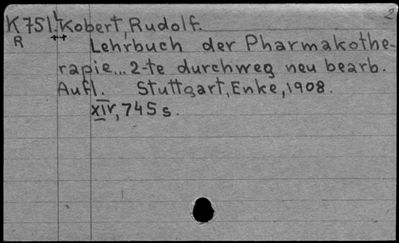 2
K751.L Kobert, Rudolf.
R ++
Lehrbuch der Pharmakothe-
rapie... 2-te durchweg neu bearb.
Aufl. Stuttgart, Enke, 1908.
XIV, 745 s.